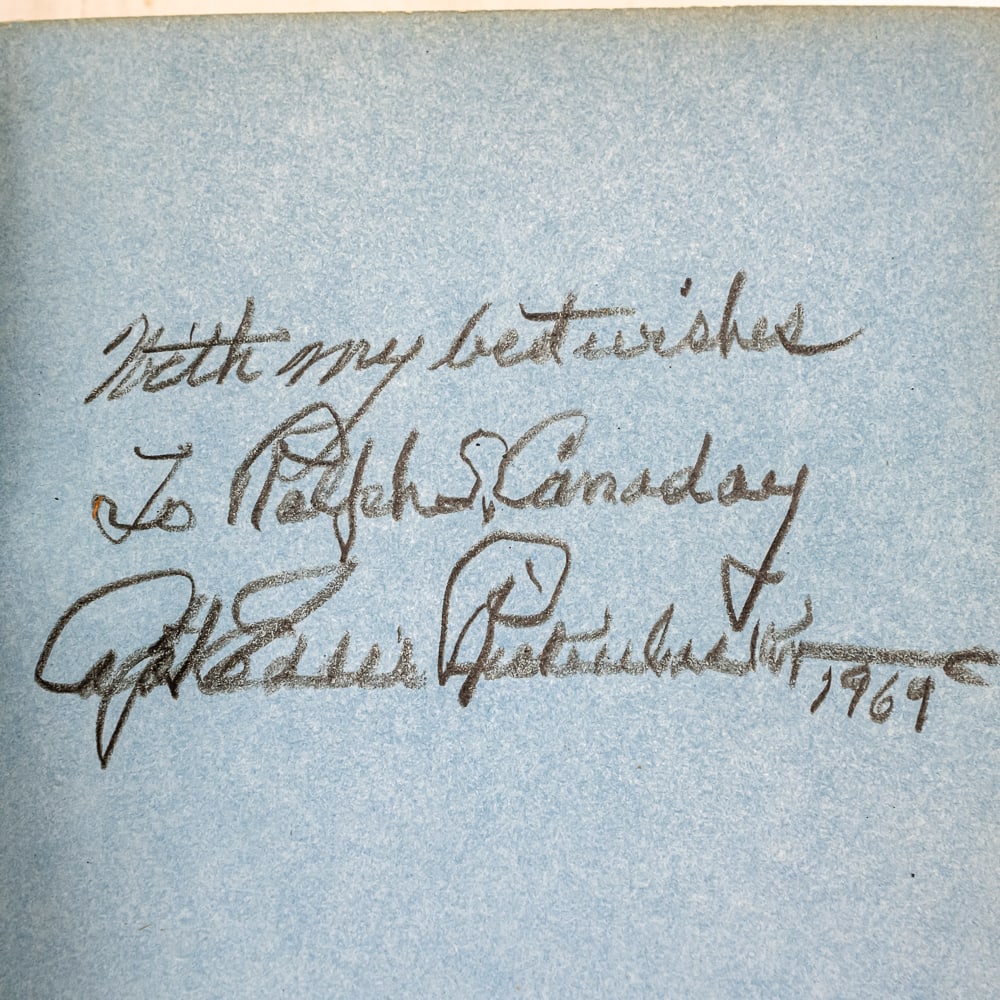 With my best wishes
To Ralph S. Canaday
Capt Eddie Rickenbacker
1969